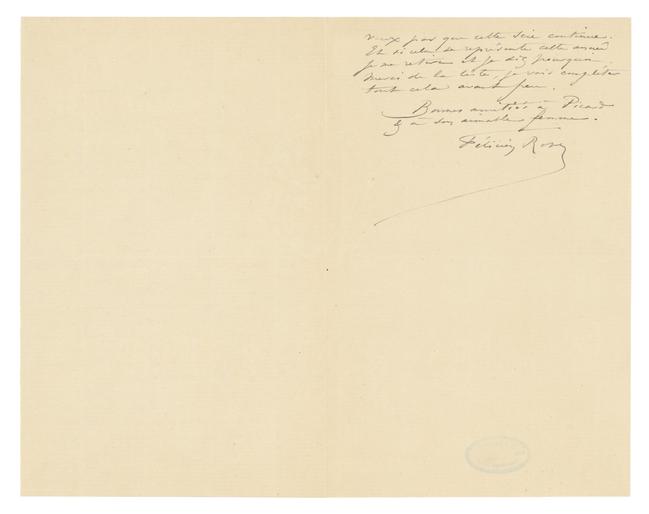 veux pas que cette scie continue.
Et si cela se représente cette année
je me retire et je dis pourquoi.
Merci de la liste, je vais compléter
tout cela avant peu.
Bonnes amitiés à Picard
& à son aimable femme.
Félicien Rops